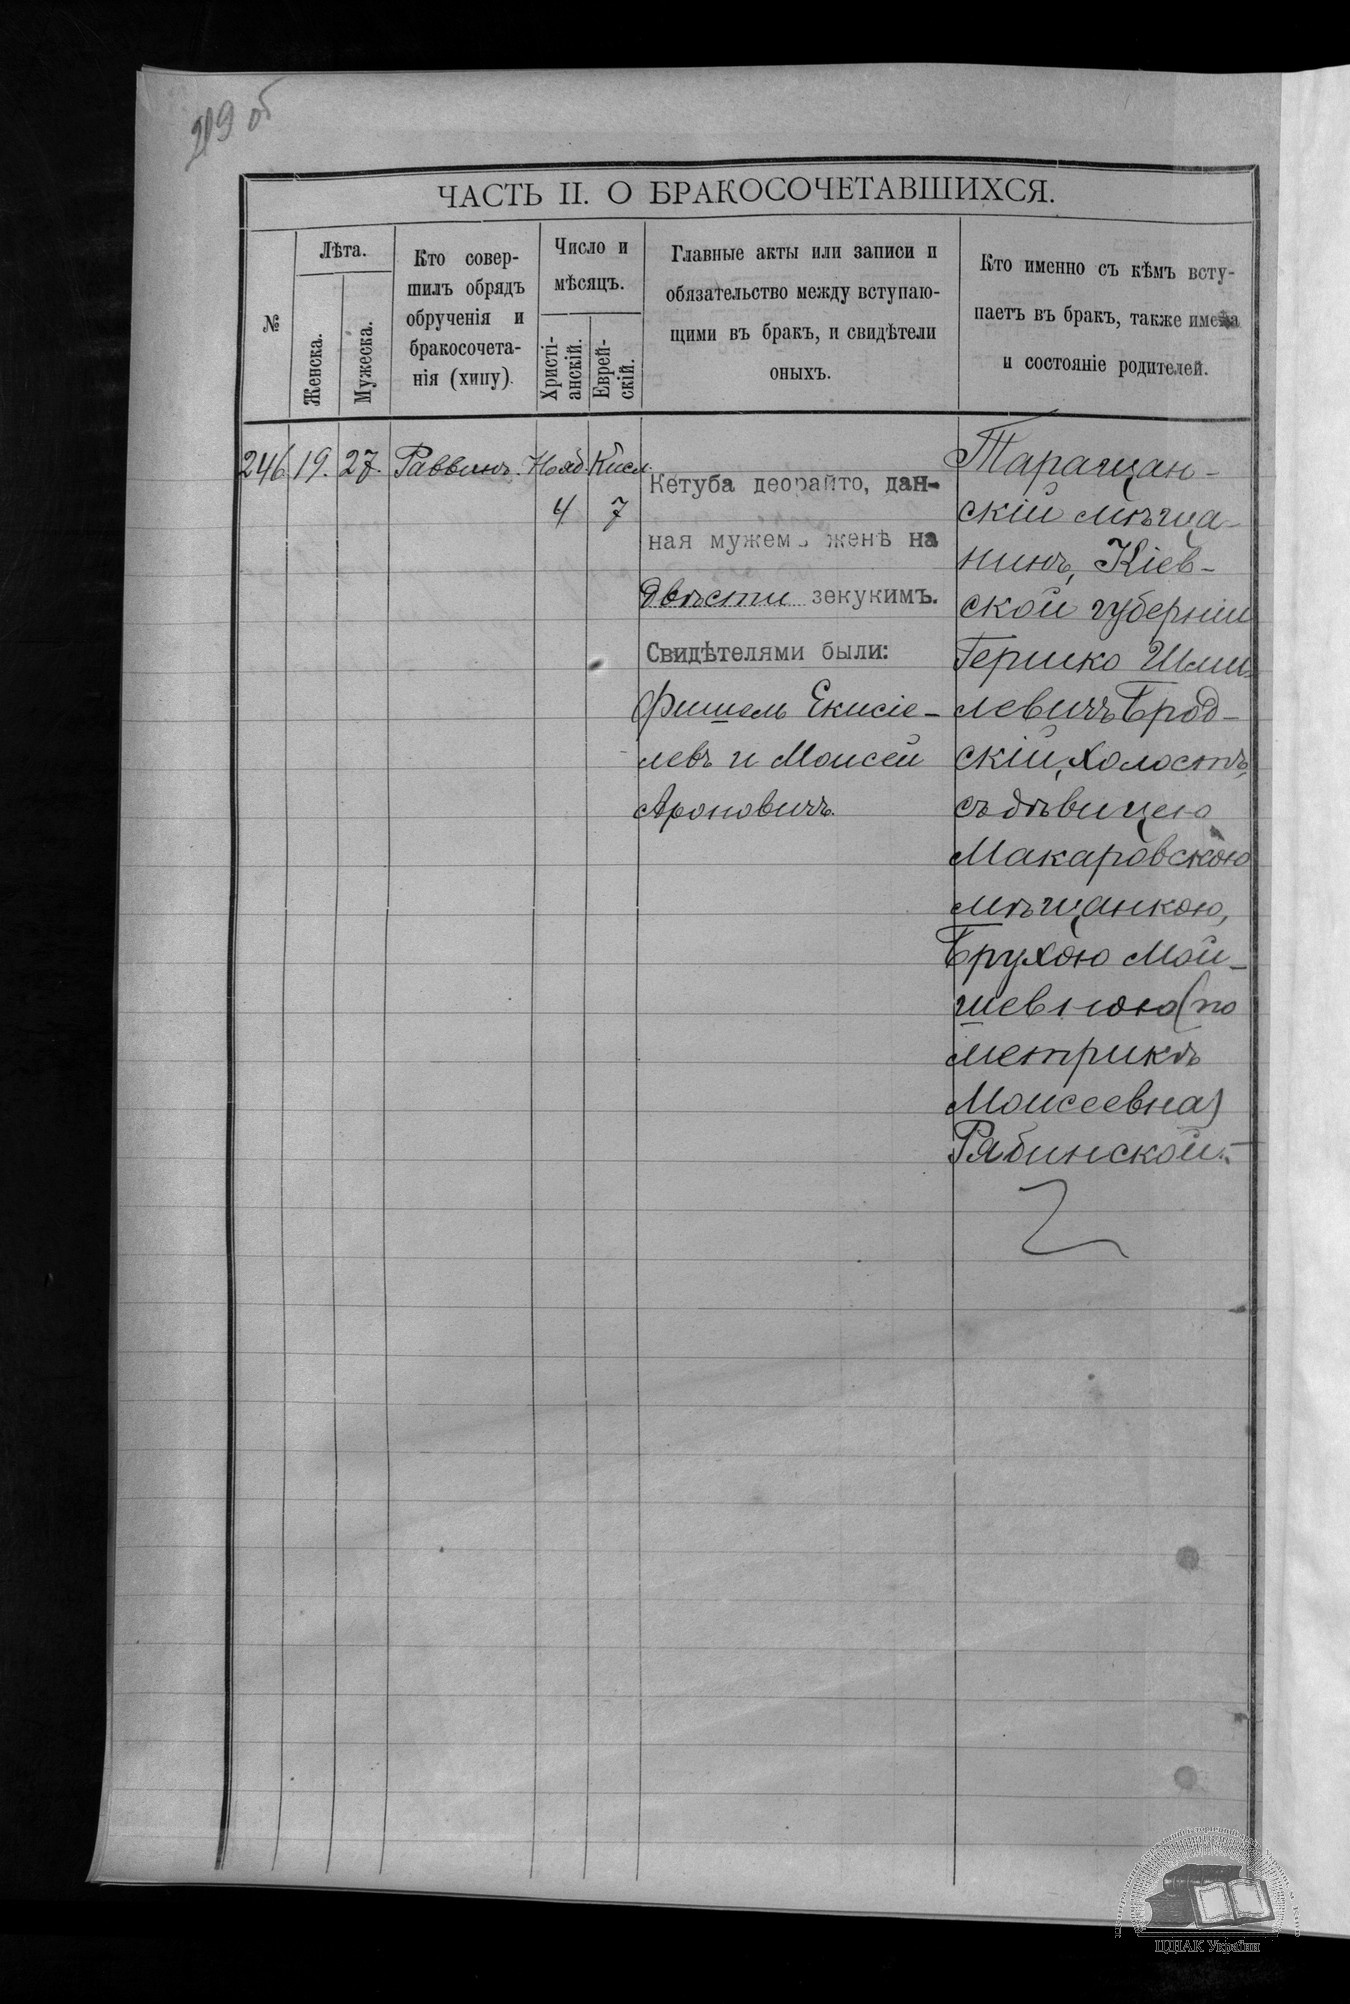 219 об
ЧАСТЬ II. О БРАКОСОЧЕТАВШИХСЯ.
№
Лѣта.
Женска.
Мужеска.
Кто совер-
шилъ обрядъ
обрученія и
бракосочета-
нія (хипу).
Число и
мѣсяцъ.
Христі-
анскій.
Еврей-
скій.
Главные акты или записи и
обязательство между вступаю-
щими въ бракъ, и свидѣтели
оныхъ.
Кто именно съ кѣмъ всту-
паетъ въ бракъ, также имена
и состояніе родителей.
246
19.
27.
Раввинъ.
Нояб
4
Кисл.
7
Кетуба деорайто, дан-
ная мужемъ женѣ на
двѣсти зекукимъ.
Свидѣтелями были:
Фишель Екисіе-
левъ и Моисей
Ароновичъ.
Таращан-
скій мѣща-
нинъ, Кіев-
ской губерніи
Гершко Шми-
левичъ Брод-
скій, холостъ,
съ дѣвицею
Макаровскою
мѣщанкою,
Брухою Мой-
шевною (по
метрикѣ
Моисеевна)
Рябинской.-
ЦДІАК України